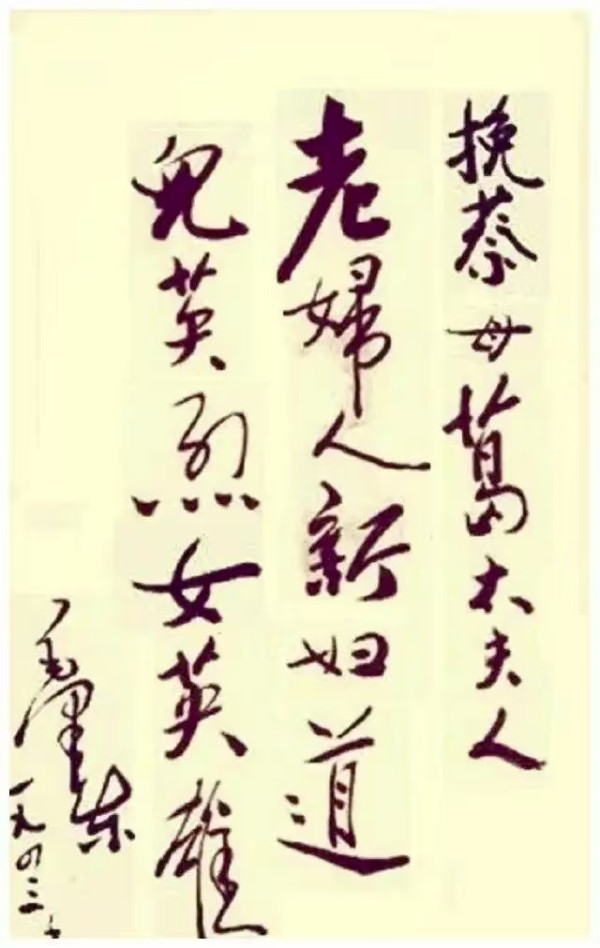 挽蔡母葛太夫人
老婦人新妇道
兒英烈女英雄
毛澤东
一九四三